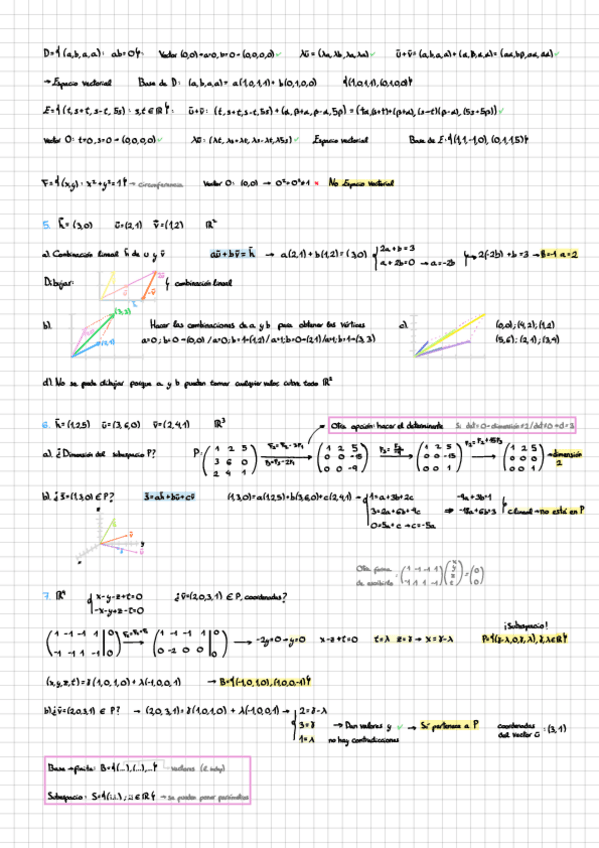 D={(a,b,a,a): ab=0}: Vector (0,0)=a=0, b=0 → (0,0,0,0) ✓ λū = (λa, λb, λa, λa) ✓ ū+v̄ = (a,b,a,a) + (α,β,α,α) =
→ Espacio vectorial Base de D: (a,b,a,a) = a(1,0,1,1) + b(0,1,0,0) {(1,0,1,1),(0,1,0,0)}
E={(t, s+t, s-t, 5s): s,t ∈ ℝ}: ū+v̄: (t, s+t, s-t, 5s) + (α, β+α, β-α, 5β) =
Vector 0: t=0, s=0 → (0,0,0,0) ✓ λū: (λt, λs+λt, λs-λt, λ5s) ✓ Espacio vectorial Base de E: {(1,1,-1,0), (0,1,1,5)}
F={(x,y): x²+y²=1} → circumferencia Vector 0: (0,0) → 0²+0²≠1 × No Espacio vectorial
5. h̄= (3,0) ū=(2,1) v̄=(1,2) ℝ²
a) Combinación lineal h̄ de u y v̄ aū+bv̄=h̄ → a(2,1)+b(1,2)=(3,0) { 2a+b=3
a+2b=0 → a=-2b 2(-2b)+b=3 → b=-1 a=2
Dibujar: combinación lineal
b). Hacer las combinaciones de a y b para obtener los vértices c).
(3,3) (2,1)
a=0; b=0 → (0,0) / a=0; b=1 → (1,2) / a=1; b=0 → (2,1) / a=1; b=1 → (3,3)
(0,0); (4,2); (1,2)
(5,6); (2,1); (3,4)
d). No se puede dibujar porque a y b pueden tomar cualquier valor sobre todo ℝ²
6. h̄= (1,2,5) ū=(3,6,0) v̄=(2,4,1) ℝ³ Otra opción: hacer el determinante
a). ¿Dimensión del subespacio P? P: (1 2 5
3 6 0
2 4 1) → (1 2 5
0 0 -15
0 0 -9) → (1 2 5
0 0 -15
0 0 1) → (1 2 5
0 0 0
0 0 1) → dimensión 2
b). ¿ s̄=(1,3,0) ∈ P? s̄=ah̄+bū+cv̄ (1,3,0)=a(1,2,5)+b(3,6,0)+c(2,4,1) → { 1=a+3b+2c
3=2a+6b+4c
0=5a+c → c=-5a
-9a+3b=1
-18a+6b=3 → no está en P
Otra forma de escribirlo : (1 -1 -1 1
-1 -1 1 -1) (x y z t) = (0 0)
7. ℝ⁴ { x-y-z+t=0
-x-y+z-t=0
¿ v̄=(2,0,3,1) ∈ P, coordenadas?
¡Subespacio!
(1 -1 -1 1 | 0
-1 -1 1 -1 | 0) → (1 -1 -1 1 | 0
0 -2 0 0 | 0) → -2y=0 → y=0 x-z+t=0 t=λ z=γ → x=γ-λ P={(γ-λ,0,γ,λ), γ,λ∈ℝ}
(x,y,z,t) = γ(1,0,1,0) + λ(-1,0,0,1) → B={(-1,0,1,0),(1,0,0,-1)}
b) ¿ v̄=(2,0,3,1) ∈ P? → (2,0,3,1) = γ(1,0,1,0) + λ(-1,0,0,1) → { 2=γ-λ
3=γ → Dan valores y ✓ → Sí pertenece a P coordenadas del vector ū : (3,1)
1=λ no hay contradicciones
Base → finita: B={(...),(...),...} → vectores
Subespacio: S={(...) ; ... ∈ ℝ} → se pueden poner parámetros